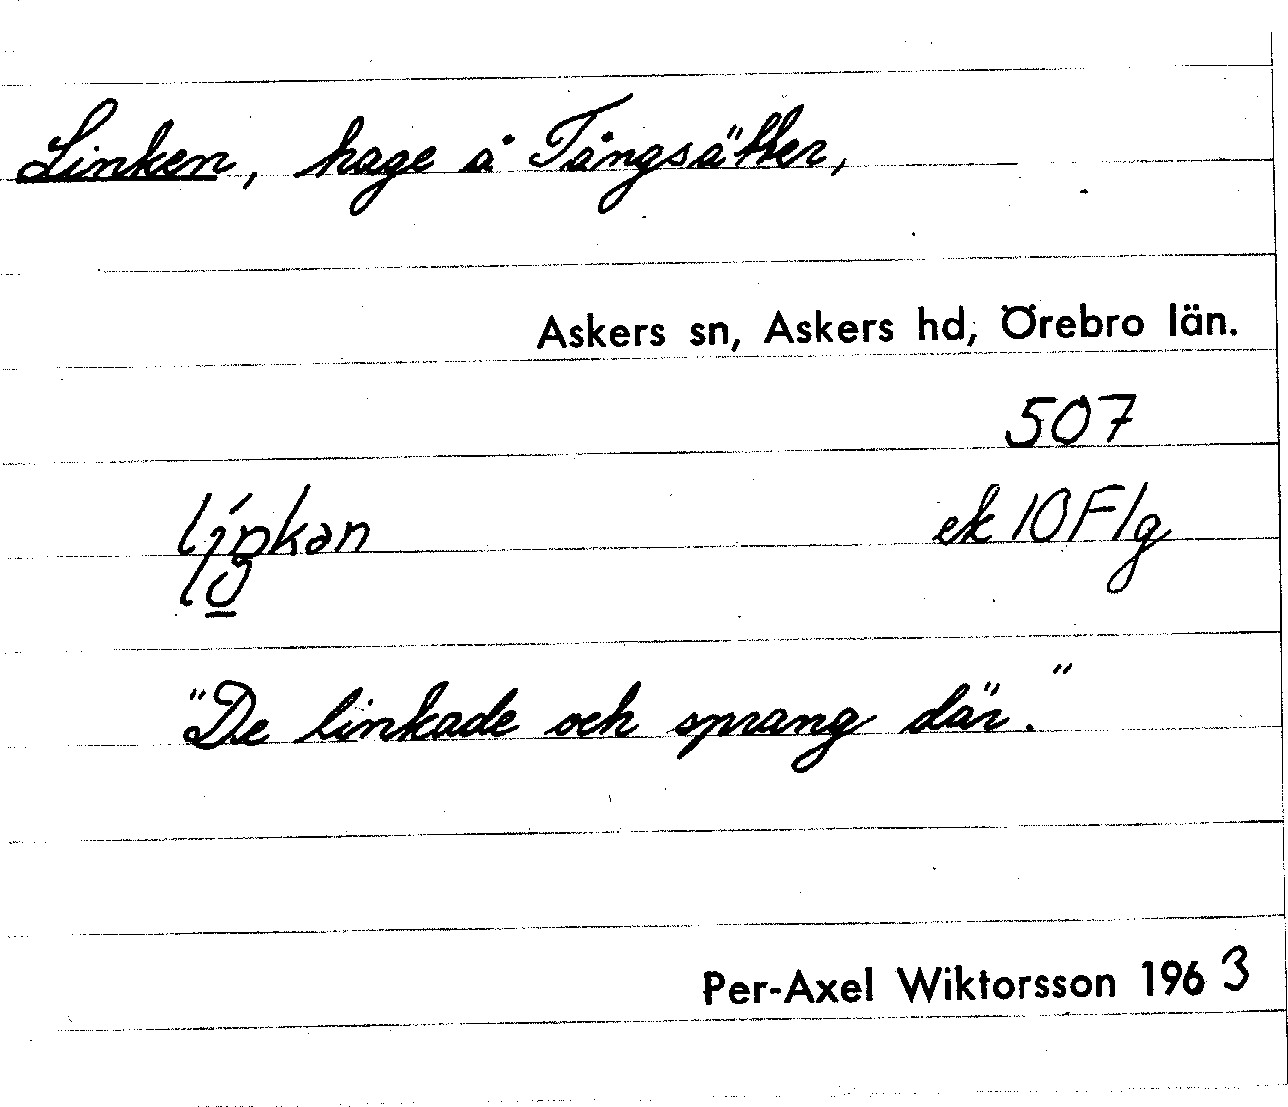 Linken, hage å Tångsätter,
Askers sn, Askers hd, Örebro län.
507
ek 10 F 1g
"De linkade och sprang där."
Per-Axel Wiktorsson 1963